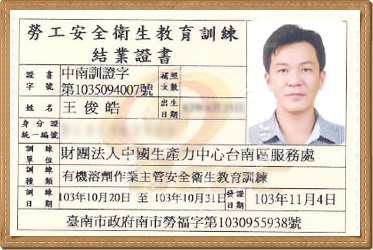 勞工安全衛生教育訓練
結業證書
證書字號 中南訓證字第1035094007號 補照次數
姓名 王俊皓 出生日期
身分證統一編號
訓練單位 財團法人中國生產力中心台南區服務處
訓練種類 有機溶劑作業主管安全衛生教育訓練
訓練日期 103年10月20日 至 103年10月31日 發證日期 103年11月4日
臺南市政府南市勞福字第1030955938號